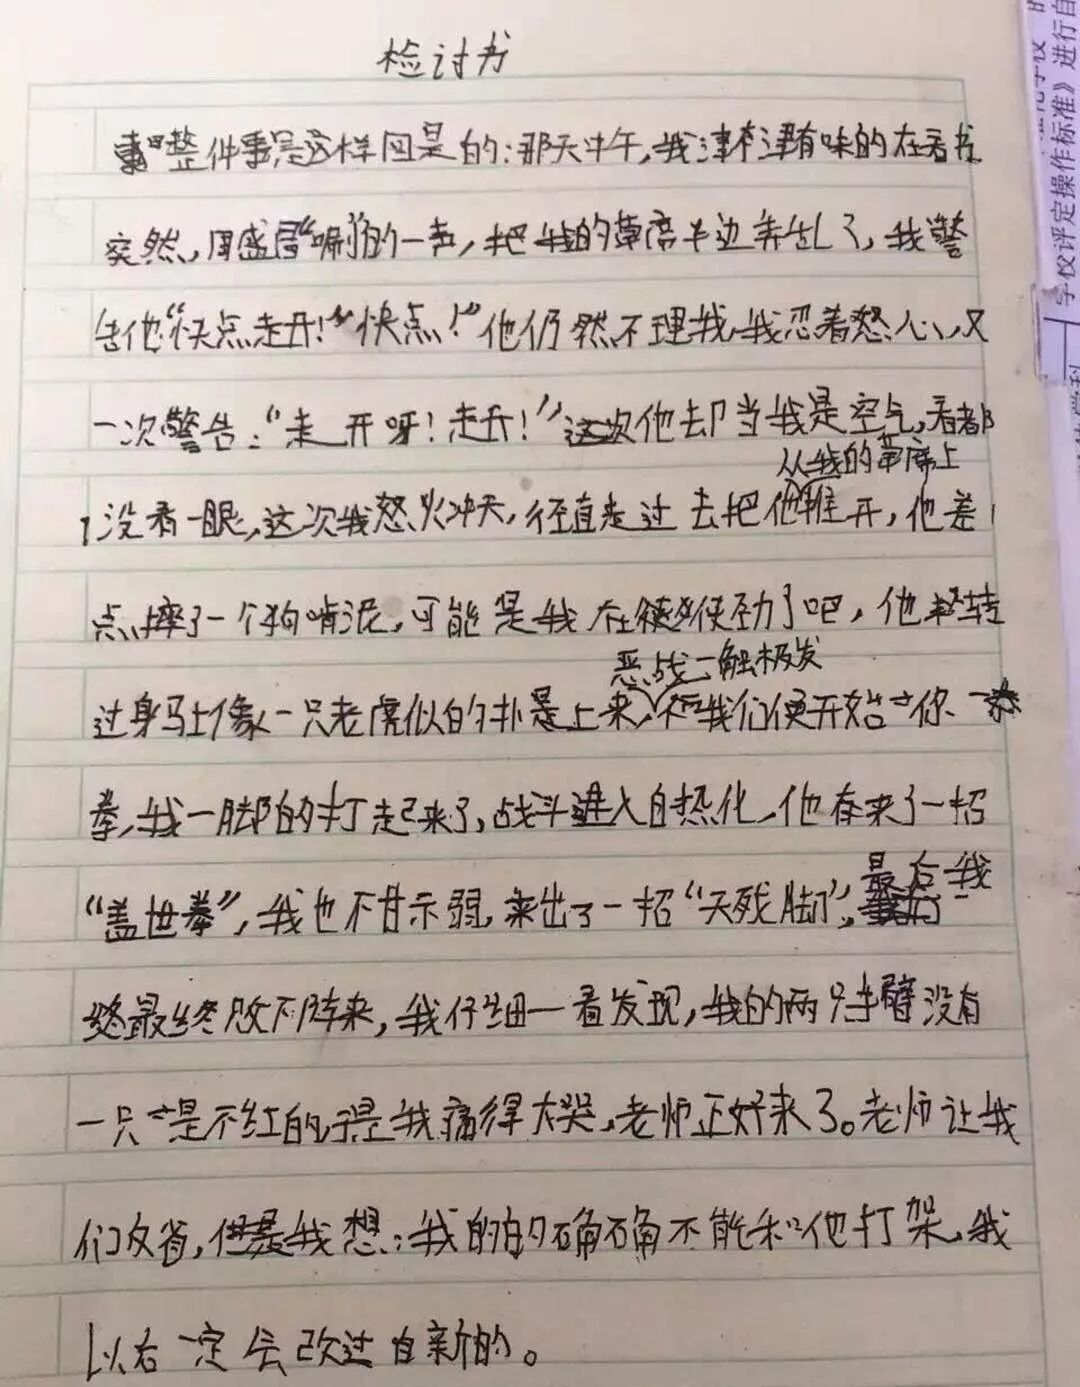 检讨书
整件事是这样的:那天中午,我津津有味的在看书
突然,周盛“唰”的一声,把我的草席半边弄乱了,我警
告他“快点走开!”“快点!”他仍然不理我,我忍着怒心,又
一次警告:“走开呀!走开!”这次他却当我是空气,看都
从我的草席上
没看一眼,这次我怒火冲天,径直走过去把他推开,他差
点摔了一个狗啃泥,可能是我在使劲了吧,他转
恶战一触极发
过身马上像一只老虎似的扑上来,我们便开始你一
拳,我一脚的打起来了,战斗进入自热化,他存来了一招
“盖世拳”,我也不甘示弱,来出了一招“天残脚”,最后我
最终败下阵来,我仔细一看发现,我的两只手臂没有
一只是不红的于是我痛得大哭,老师正好来了。老师让我
们反省,我想:我的的确确不能和他打架,我
以右一定会改过自新的。
学校评定操作标准》进行自
学科